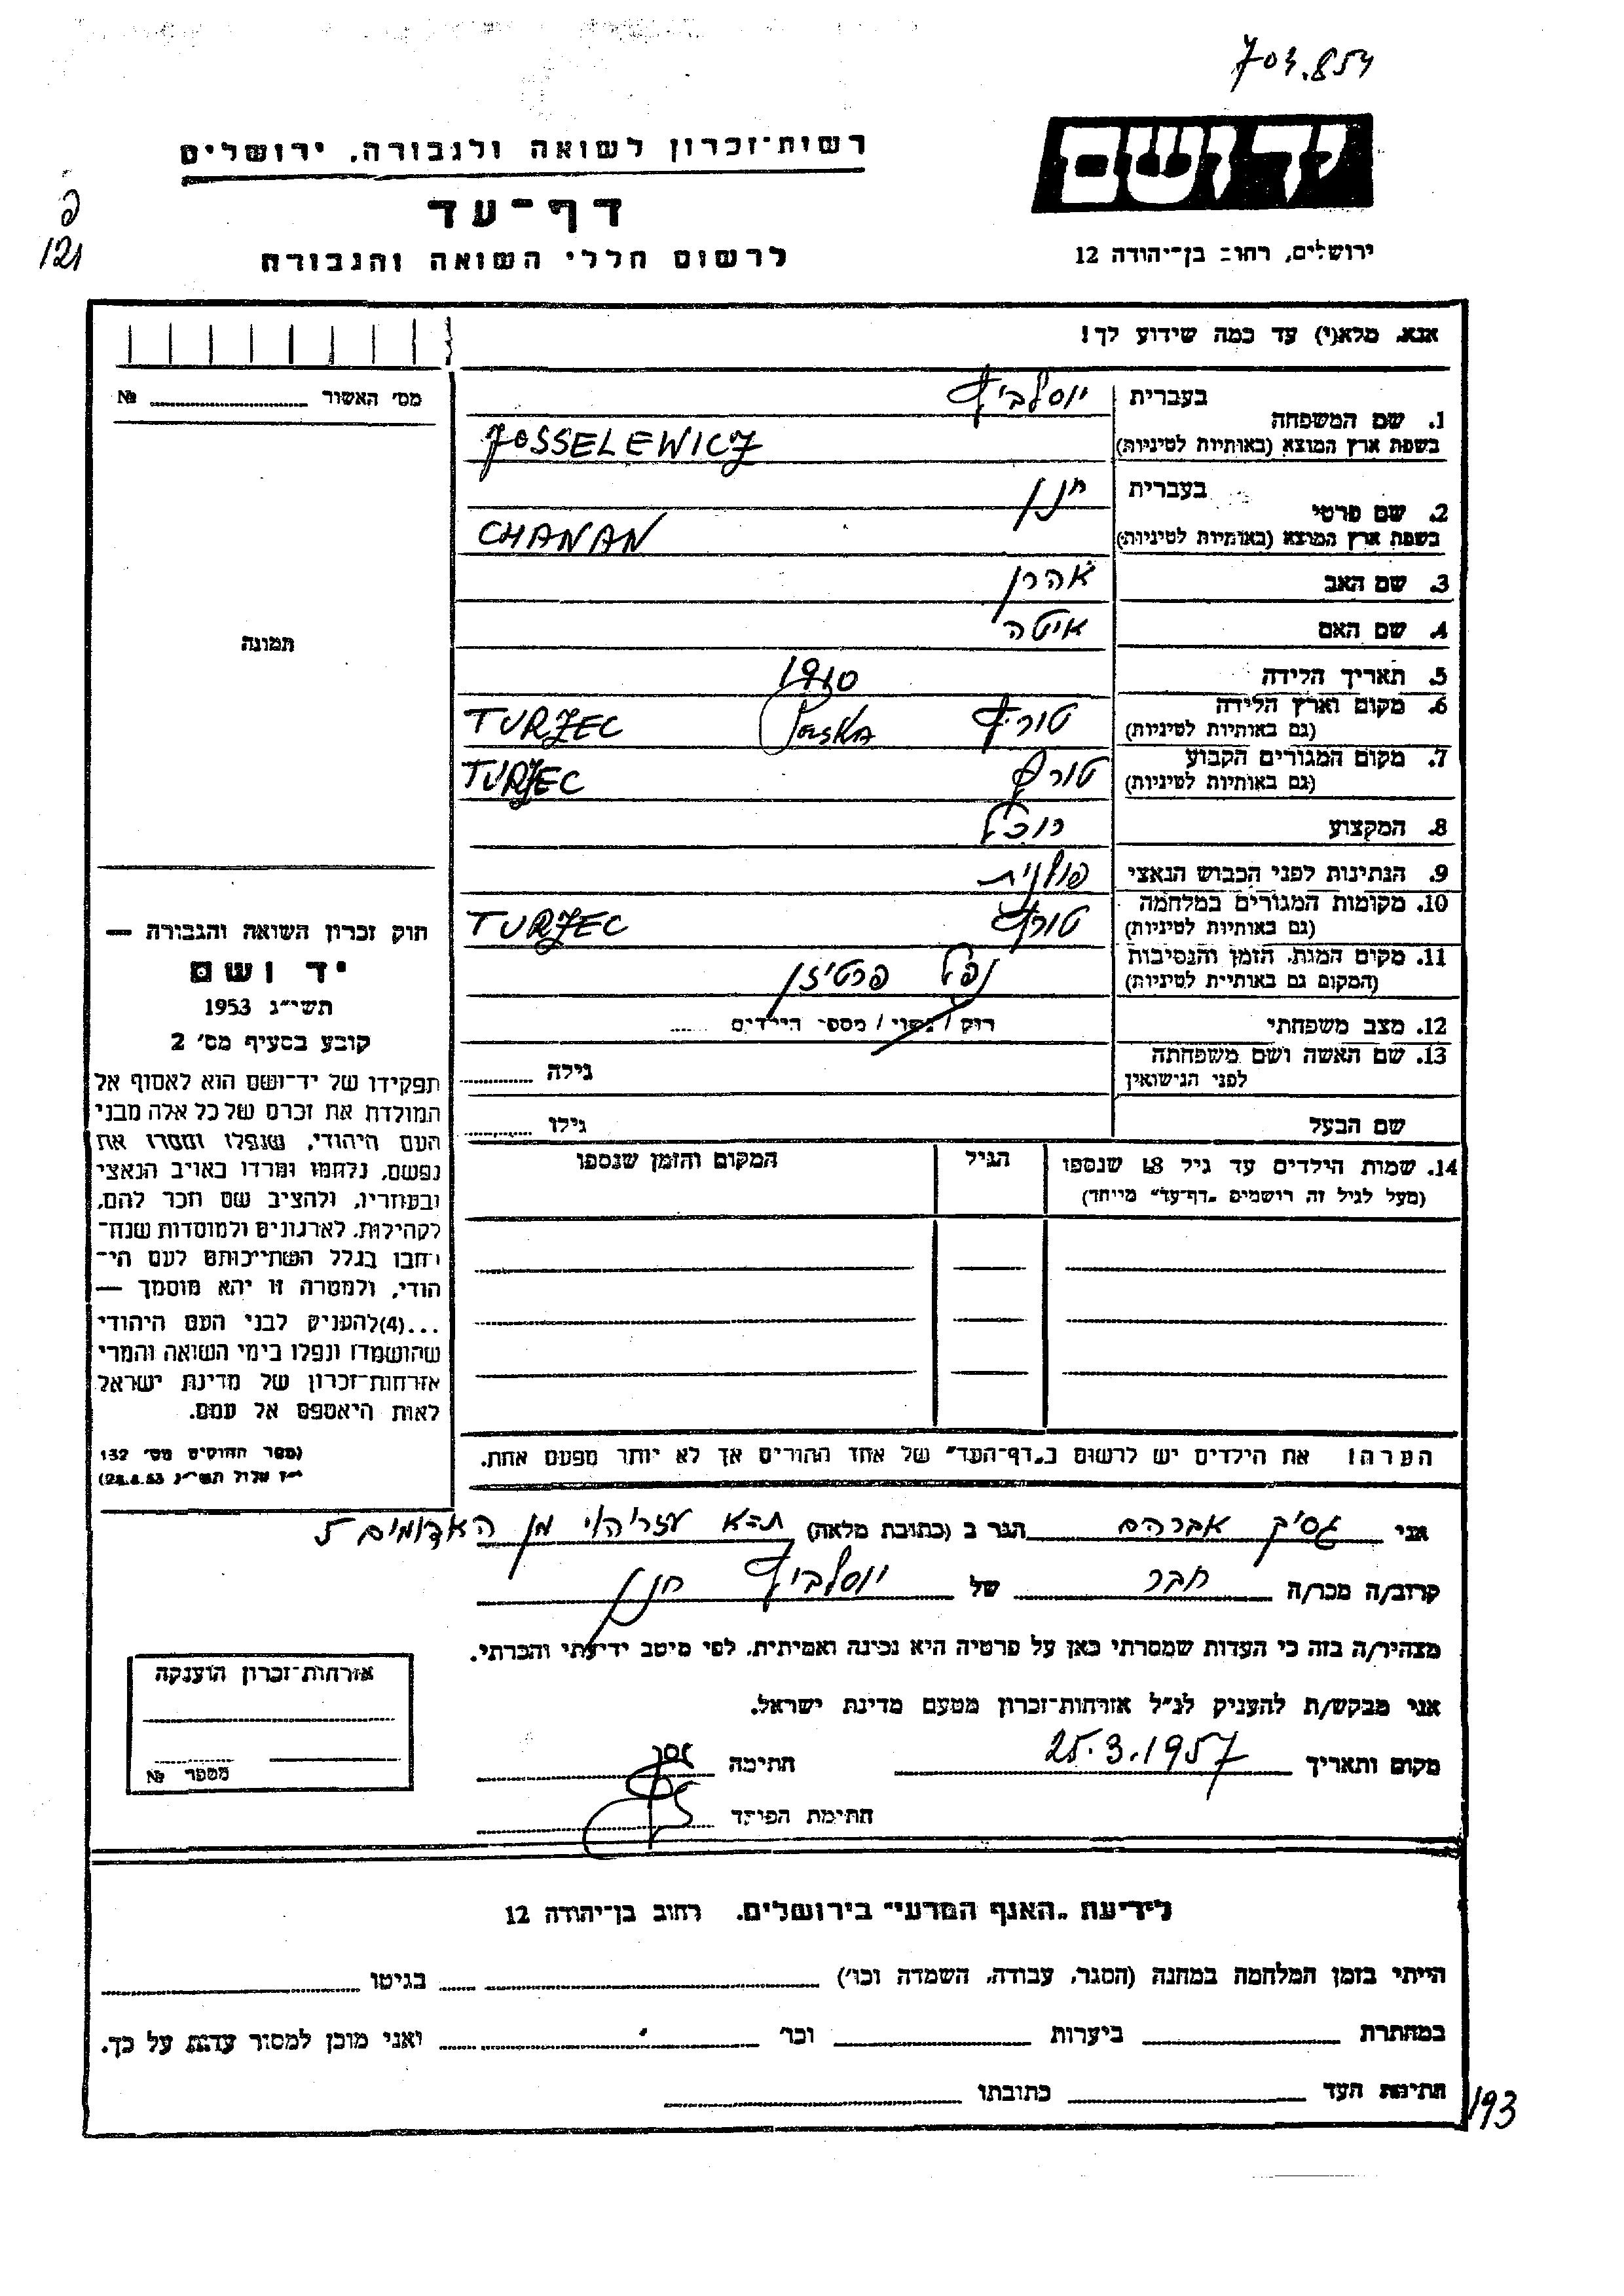 703.854
יד ושם
ירושלים, רחוב בן־יהודה 12
רשות־זכרון לשואה ולגבורה, ירושלים
דף־עד
לרשום חללי השואה והגבורה
פ
121
אנא, מלא(י) עד כמה שידוע לך!
1. שם המשפחה בעברית יוסלביץ
בשפת ארץ המוצא (באותיות לטיניות) JOSSELEWICZ
2. שם פרטי בעברית חנן
בשפת ארץ המוצא (באותיות לטיניות) CHANAN
3. שם האב אהרן
4. שם האם איטה
5. תאריך הלידה 1910
6. מקום וארץ הלידה (גם באותיות לטיניות) טוריץ Polska TURZEC
7. מקום המגורים הקבוע (גם באותיות לטיניות) טורץ TURZEC
8. המקצוע רוכל
9. הנתינות לפני הכבוש הנאצי פולנית
10. מקומות המגורים במלחמה (גם באותיות לטיניות) טורץ TURZEC
11. מקום המות, הזמן והנסיבות (המקום גם באותיות לטיניות) נפל פרטיזן
12. מצב משפחתי רוק / נשוי / מספר הילדים ......
13. שם האשה ושם משפחתה לפני הנישואין גילה
שם הבעל גילו
14. שמות הילדים עד גיל 18 שנספו הגיל המקום והזמן שנספו
(מעל לגיל זה רושמים „דף־עד" מיוחד)
הערה! את הילדים יש לרשום ב„דף־העד" של אחד ההורים אך לא יותר מפעם אחת.
מס' האשור №
תמונה
חוק זכרון השואה והגבורה —
יד ושם
תשי"ג 1953
קובע בסעיף מס' 2
תפקידו של יד־ושם הוא לאסוף אל
המולדת את זכרם של כל אלה מבני
העם היהודי, שנפלו ומסרו את
נפשם, נלחמו ומרדו באויב הנאצי
ובעוזריו, ולהציב שם וזכר להם,
לקהילות, לארגונים ולמוסדות שנח־
רבו בגלל השתייכותם לעם הי־
הודי, ולמטרה זו יהא מוסמך —
...(4)להעניק לבני העם היהודי
שהושמדו ונפלו בימי השואה והמרי
אזרחות־זכרון של מדינת ישראל
לאות היאספם אל עמם.
(ספר החוקים מס' 132
י"ז אלול תשי"ג 28.8.53)
אני גסיק אברהם הגר ב (כתובת מלאה) ת"א מן האדומים 5
קרוב/ה מכר/ה חבר של יוסלביץ חנן
מצהיר/ה בזה כי העדות שמסרתי כאן על פרטיה היא נכונה ואמיתית, לפי מיטב ידיעתי והכרתי.
אני מבקש/ת להעניק לנ"ל אזרחות־זכרון מטעם מדינת ישראל.
מקום ותאריך 25.3.1957 חתימה
חתימת הפוקד
אזרחות־זכרון הוענקה
מספר №
לידיעת „האגף המדעי" בירושלים, רחוב בן־יהודה 12
הייתי בזמן המלחמה במחנה (הסגר, עבודה, השמדה וכו') בגיטו
במחתרת ביערות וכו' ואני מוכן למסור עדות על כך.
חתימת העד כתובתו
193